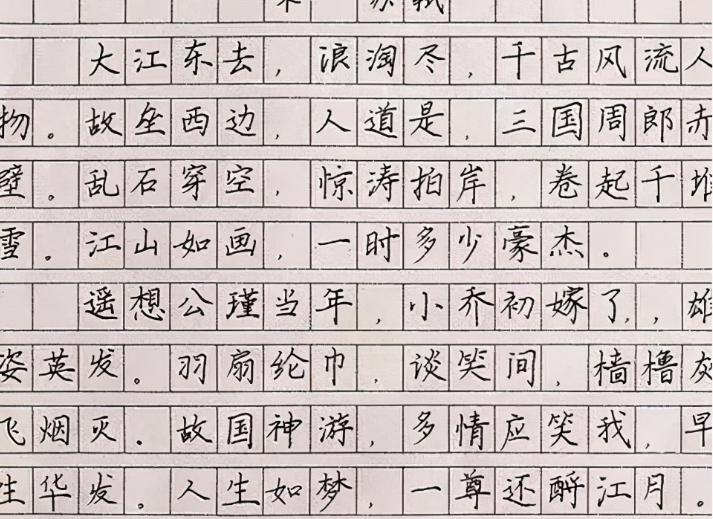 大江东去，浪淘尽，千古风流人
物。故垒西边，人道是，三国周郎赤
壁。乱石穿空，惊涛拍岸，卷起千堆
雪。江山如画，一时多少豪杰。
遥想公瑾当年，小乔初嫁了，，雄
姿英发。羽扇纶巾，谈笑间，樯橹灰
飞烟灭．故国神游，多情应笑我，早
生华发。人生如梦，一尊还酹江月。